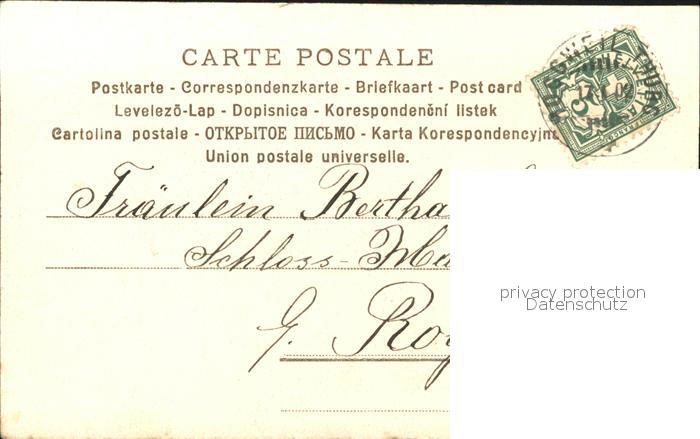 CARTE POSTALE
Postkarte - Correspondenzkarte - Briefkaart - Post card
Levelezö-Lap - Dopisnica - Korespondenční listek
Cartolina postale - ОТКРЫТОЕ ПИСЬМО - Karta Korespondencyjna
Union postale universelle.
HELVETIA
5
Fräulein Bertha
Schloss-Ma
G. Rog
privacy protection
Datenschutz